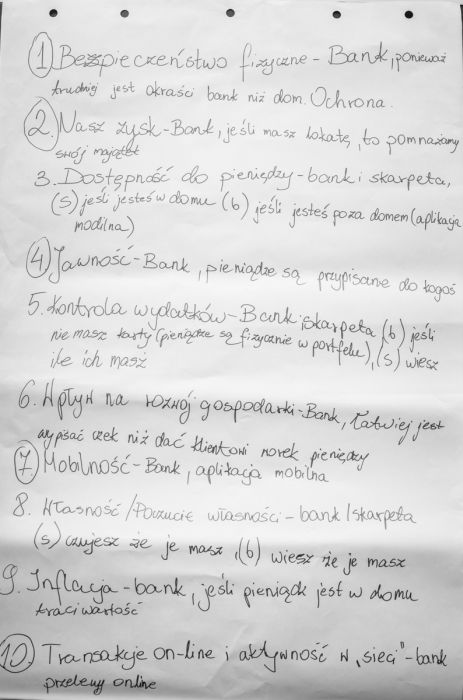 1. Bezpieczeństwo fizyczne - Bank, ponieważ
trudniej jest okraść bank niż dom. Ochrona.
2. Nasz zysk - Bank, jeśli masz lokatę, to pomnażamy
swój majątek
3. Dostępność do pieniędzy - bank i skarpeta,
(s) jeśli jesteś w domu (b) jeśli jesteś poza domem (aplikacja
modilna)
4. Jawność - Bank, pieniądze są przypisane do kogoś
5. Kontrola wydatków - Bank i skarpeta (b) jeśli
nie masz karty (pieniądze są fizycznie w portfelu), (s) wiesz
ile ich masz
6. Wpływ na rozwój gospodarki - Bank, łatwiej jest
wypisać czek niż dać klientowi worek pieniędzy
7. Mobilność - Bank, aplikacja mobilna
8. Własność / Poczucie własności - bank / skarpeta
(s) czujesz że je masz, (b) wiesz że je masz
9. Inflacja - bank, jeśli pieniądz jest w domu
traci wartość
10. Transakcje on-line i aktywność w „sieci” - bank
przelewy online